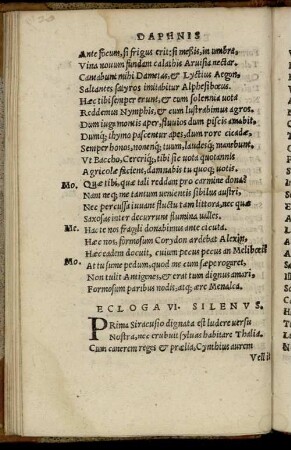 DAPHNIS
Ante focum, si frigus erit: si messis, in umbra,
Vina nouum fundam calathis Aruisia nectar.
Cantabunt mihi Damœtas, & Lyctius Aegon,
Saltantes satyros imitabitur Alphesibœus.
Hæc tibi semper erunt, & cum solennia uota
Reddemus Nymphis, & cum lustrabimus agros.
Dum iuga montis aper, fluuios dum piscis amabit,
Dumq; thymo pascentur apes, dum rore cicadæ,
Semper honos, nomenq; tuum, laudesq; manebunt.
Vt Baccho, Cereriq; tibi sic uota quotannis
Agricolæ facient, damnabis tu quoq; uotis.
Mo. Quæ tibi, quæ tali reddam pro carmine dona?
Nam neq; me tantum uenientis sibilus austri,
Nec percussa iuuant fluctu tam littora, nec quæ
Saxosas inter decurrunt flumina ualles.
Me. Hac te nos fragili donabimus ante cicuta.
Hæc nos, formosum Corydon ardebat Alexin,
Hæc eadem docuit, cuium pecus? an Melibœi?
Mo. At tu sume pedum, quod me cum sæpe rogaret,
Non tulit Antigenes, & erat tum dignus amari,
Formosum paribus nodis, atq; ære Menalca.
ECLOGA VI. SILENVS.
PRima Siracusio dignata est ludere uersu
Nostra, nec erubuit syluas habitare Thalia.
Cum canerem reges & prælia, Cynthius aurem
Vell it